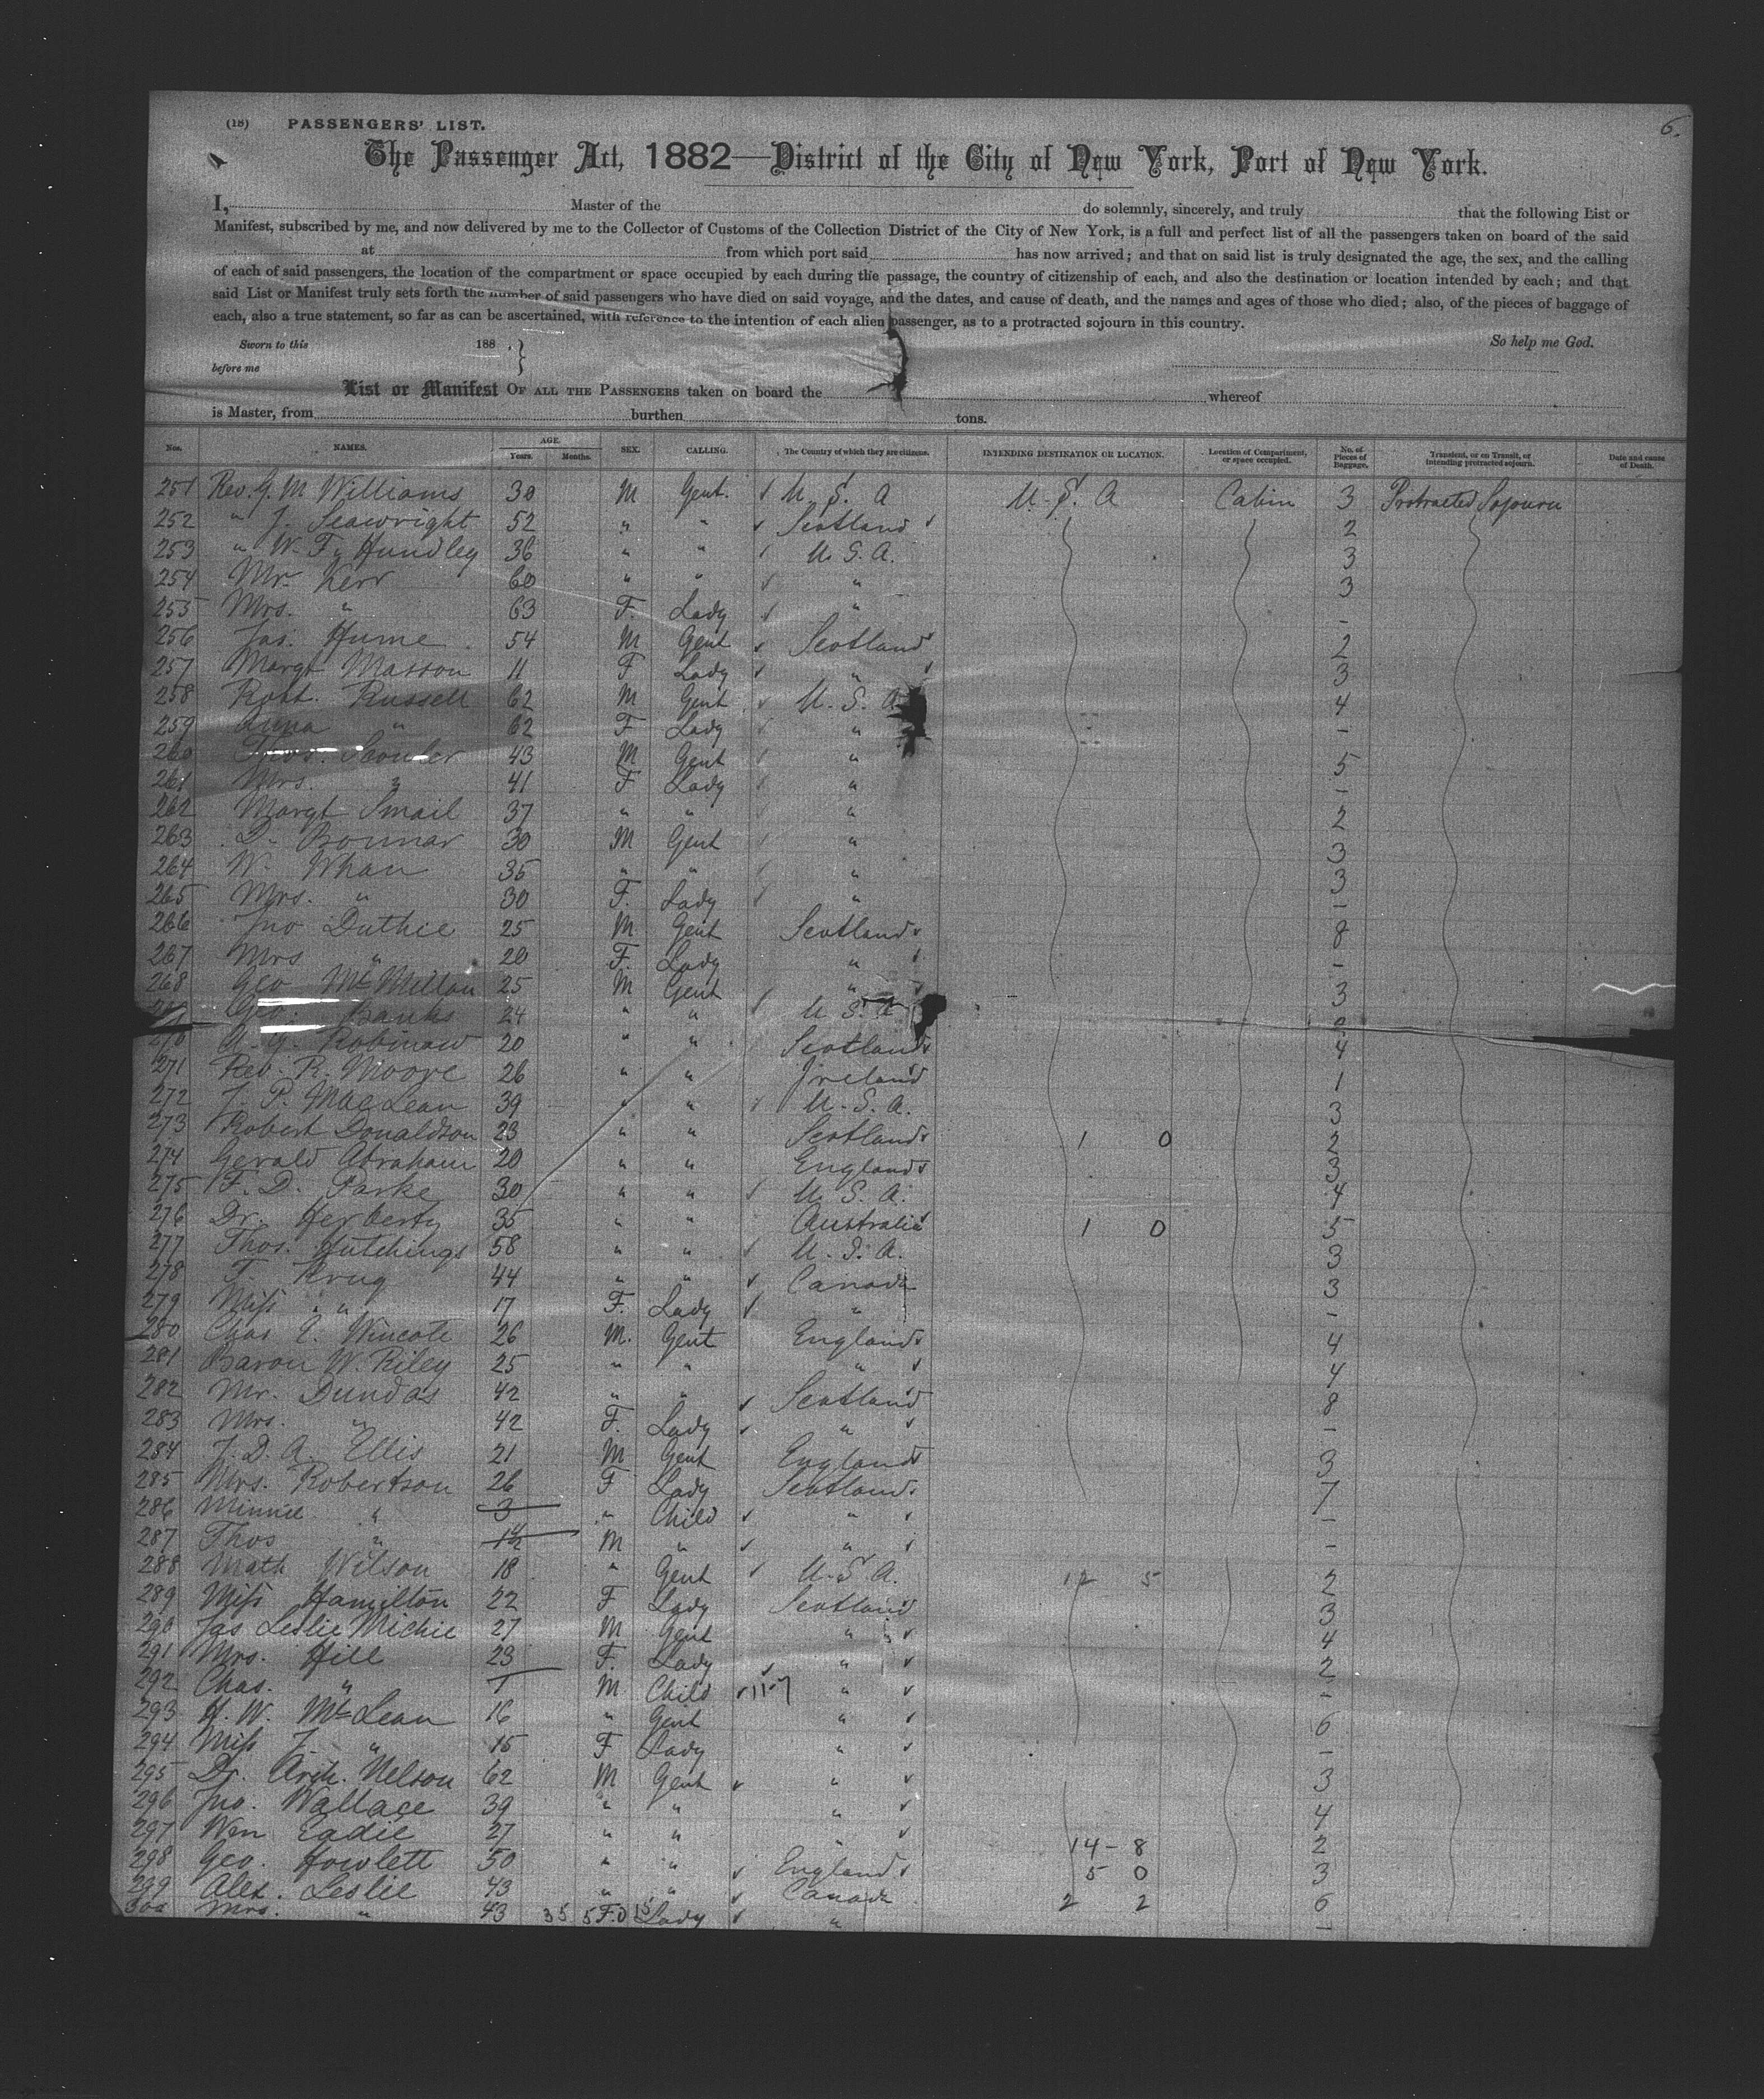 6.
(18) PASSENGERS' LIST.
The Passenger Act, 1882—District of the City of New York, Port of New York.
I, Master of the do solemnly, sincerely, and truly that the following List or
Manifest, subscribed by me, and now delivered by me to the Collector of Customs of the Collection District of the City of New York, is a full and perfect list of all the passengers taken on board of the said
at from which port said has now arrived; and that on said list is truly designated the age, the sex, and the calling
of each of said passengers, the location of the compartment or space occupied by each during the passage, the country of citizenship of each, and also the destination or location intended by each; and that
said List or Manifest truly sets forth the number of said passengers who have died on said voyage, and the dates, and cause of death, and the names and ages of those who died; also, of the pieces of baggage of
each, also a true statement, so far as can be ascertained, with reference to the intention of each alien passenger, as to a protracted sojourn in this country.
Sworn to this 188 . } So help me God.
before me
List or Manifest OF ALL THE PASSENGERS taken on board the whereof
is Master, from burthen tons.
Nos. NAMES. AGE. Years. Months. SEX. CALLING. The Country of which they are citizens. INTENDING DESTINATION OR LOCATION. Location of Compartment, or space occupied. No. of Pieces of Baggage. Transient, or in Transit, or intending protracted sojourn. Date and cause of Death.
251 Rev. G. M Williams 30 M Gent. U. S. A U. S. A Cabin 3 Protracted Sojourn
252 " J. Seawright 52 " " Scotland 2
253 " W. F. Hundley 36 " " U. S. A. 3
254 Mr. Kerr 60 " " " 3
255 Mrs. " 63 F. Lady " -
256 Jas. Hume 54 M Gent Scotland 2
257 Margt Masson 11 F Lady " 3
258 Robt. Russell 62 M Gent U. S. A 4
259 Anna " 62 F Lady " -
260 Thos. Scouler 43 M Gent " 5
261 Mrs. " 41 F Lady " -
262 Margt Smail 37 " " " 2
263 D. Bonnar 30 M Gent " 3
264 W. Whan 35 " " " 3
265 Mrs. " 30 F. Lady " -
266 Jno Duthie 25 M Gent Scotland 8
267 Mrs " 20 F. Lady " -
268 Geo McMillan 25 M Gent " 3
Geo. Banks 24 " " U S. A
270 A. G. Robinow 20 " " Scotland 4
271 Rev. R. Moore 26 " " Ireland 1
272 J. P. MacLean 39 " " U. S. A. 3
273 Robert Donaldson 23 " " Scotland 1 0 2
274 Gerald Abraham 20 " " England 3
275 F. D. Parke 30 " " U. S. A. 4
276 Dr. Herberty 35 " " Australia 1 0 5
277 Thos. Hutchings 58 " " U. S. A. 3
278 T. Krug 44 " " Canada 3
279 Miss " 17 F. Lady " -
280 Chas E. Wincote 26 M. Gent England 4
281 Baron W. Riley 25 " " " 4
282 Mr. Dundas 42 " " Scotland 8
283 Mrs. " 42 F. Lady " -
284 J. D. A. Ellis 21 M Gent England 3
285 Mrs. Robertson 26 F Lady Scotland 7
286 Minnie " 3 " Child " -
287 Thos " M " " -
288 Math Wilson 18 " Gent U. S. A. 12 5 2
289 Miss Hamilton 22 F Lady Scotland 3
290 Jas Leslie Michie 27 M Gent " 4
291 Mrs. Hill 23 F. Lady " 2
292 Chas. " 1 M Child " -
293 H. W. McLean 16 " Gent " 6
294 Miss J. " 15 F Lady " -
295 Dr. Arch. Nelson 62 M Gent " 3
296 Jno. Wallace 39 " " " 4
297 Wm Eadie 27 " " " 14 - 8 2
298 Geo. Howlett 50 " " England 5 0 3
299 Alex. Leslie 43 " " Canada 2 2 6
300 Mrs. " 43 35 5 F. Lady " -